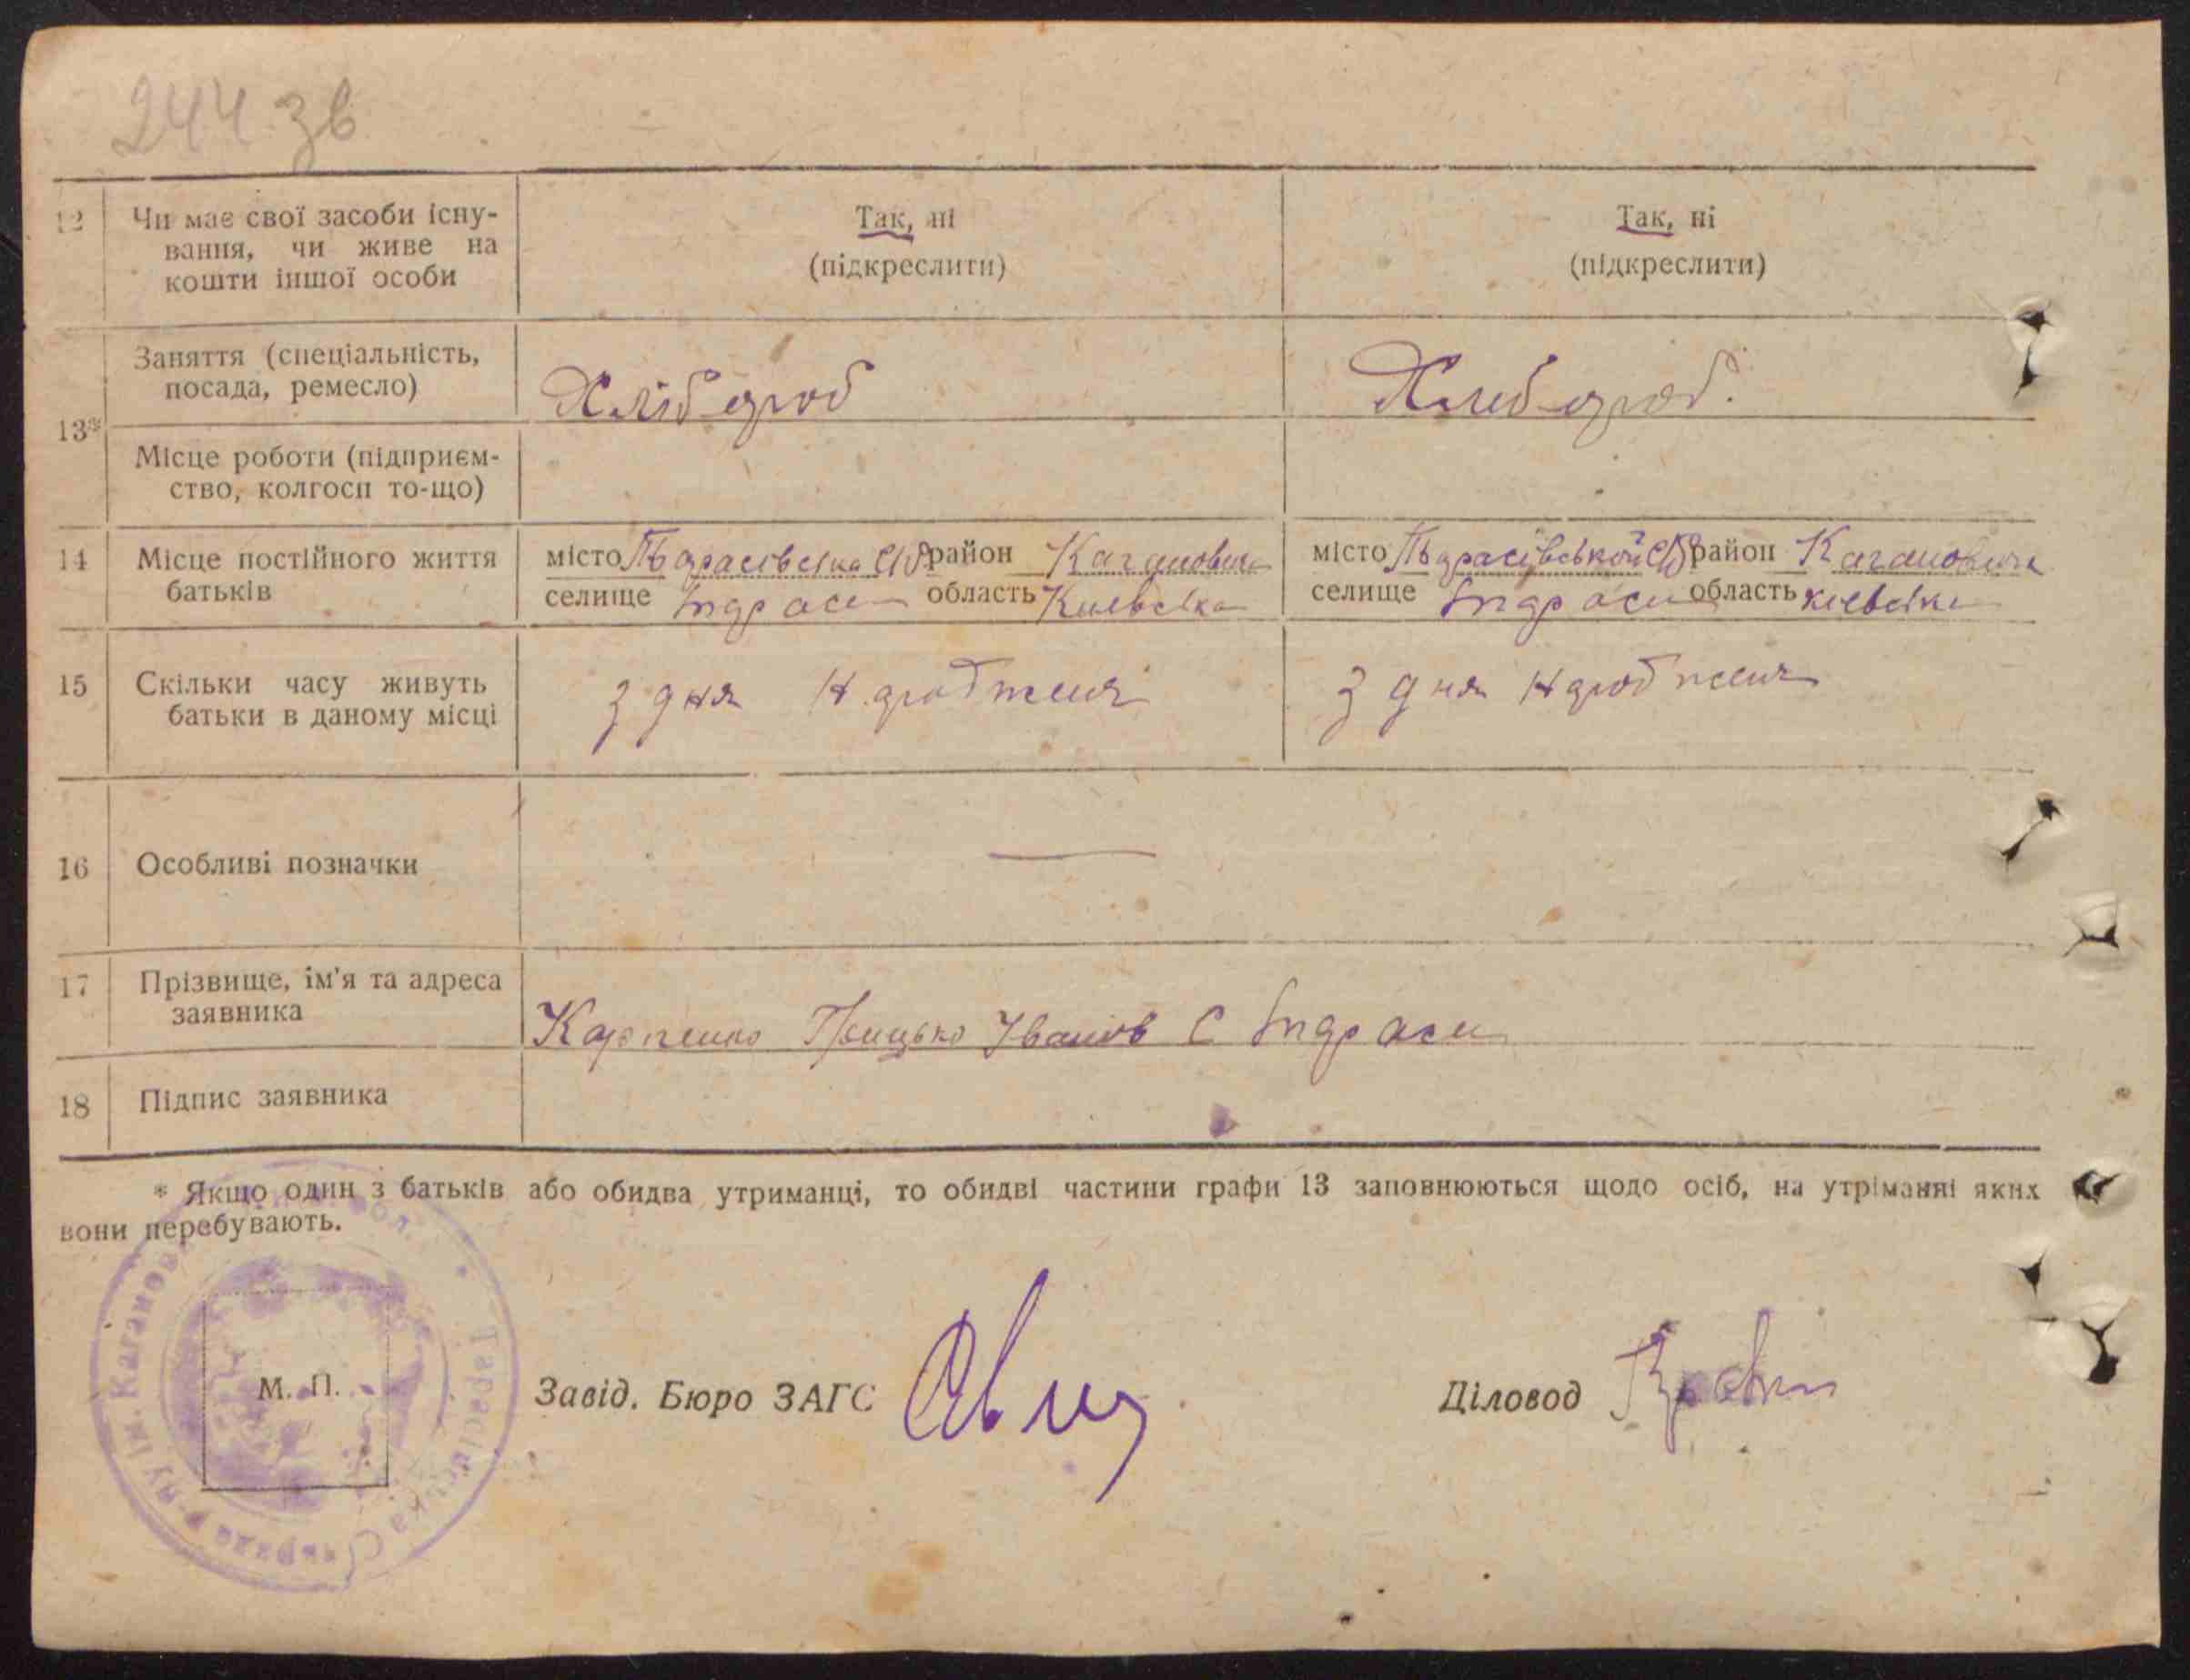 244 зв
12 Чи має свої засоби існу-
вання, чи живе на
кошти іншої особи
Так, ні
(підкреслити)
Так, ні
(підкреслити)
13*
Заняття (спеціальність,
посада, ремесло)
Хлібороб
Хлебороб.
Місце роботи (підприєм-
ство, колгосп то-що)
14 Місце постійного життя
батьків
місто Тарасівська С/Р район Кагановича
селище Тараси область Київська
місто Тарасівськой С/Р район Кагановича
селище Тараси область Київська
15 Скільки часу живуть
батьки в даному місці
З дня Нродження
З дня Нродження
16 Особливі позначки
—
17 Прізвище, ім'я та адреса
заявника
Карпенко Грицько Іванов С Тараси
18 Підпис заявника
* Якщо один з батьків або обидва утриманці, то обидві частини графи 13 заповнюються щодо осіб, на утріманні яких
вони перебувають.
М. П.
Завід. Бюро ЗАГС
Діловод
Тарасівська С рада р-ну ім. Каганов